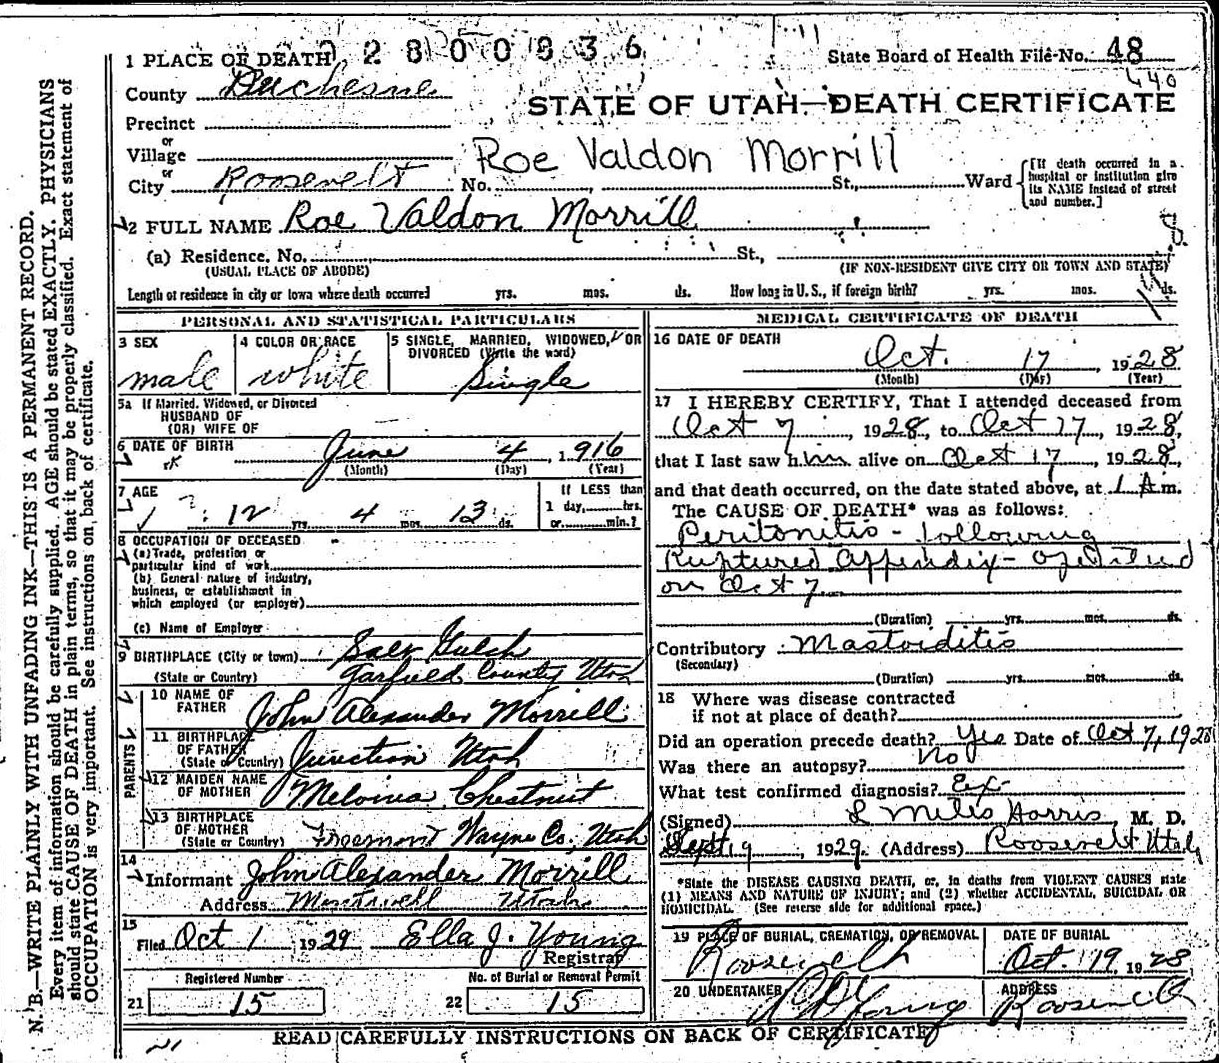 1 PLACE OF DEATH 92800836 State Board of Health File No. 48
440
County Duchesne
STATE OF UTAH—DEATH CERTIFICATE
Precinct
or
Village Roe Valdon Morrill
or
City Roosevelt No. , St., Ward
[If death occurred in a hospital or institution give its NAME instead of street and number.]
2 FULL NAME Roe Valdon Morrill
(a) Residence. No. St.,
(USUAL PLACE OF ABODE) (IF NON-RESIDENT GIVE CITY OR TOWN AND STATE)
Length of residence in city or town where death occurred yrs. mos. ds. How long in U. S., if foreign birth? yrs. mos. ds.
PERSONAL AND STATISTICAL PARTICULARS
3 SEX 4 COLOR OR RACE 5 SINGLE, MARRIED, WIDOWED, OR DIVORCED (Write the word)
male white Single
5a If Married, Widowed, or Divorced
HUSBAND OF
(OR) WIFE OF
6 DATE OF BIRTH June 4, 1916
(Month) (Day) (Year)
7 AGE If LESS than
12 yrs. 4 mos. 13 ds. 1 day, hrs.
or min.?
8 OCCUPATION OF DECEASED
(a) Trade, profession or
particular kind of work
(b) General nature of industry,
business, or establishment in
which employed (or employer)
(c) Name of Employer
9 BIRTHPLACE (City or town) Salt Gulch
(State or Country) Garfield County Utah
PARENTS
10 NAME OF FATHER John Alexander Morrill
11 BIRTHPLACE OF FATHER (State or Country) Junction Utah
12 MAIDEN NAME OF MOTHER Melvina Chestnut
13 BIRTHPLACE OF MOTHER (State or Country) Freemont Wayne Co., Utah
14
Informant John Alexander Morrill
Address Montwell Utah
15
Filed Oct 1, 1929 Ella J. Young
Registrar
Registered Number No. of Burial or Removal Permit
21 15 22 15
MEDICAL CERTIFICATE OF DEATH
16 DATE OF DEATH
Oct. 17, 1928
(Month) (Day) (Year)
17 I HEREBY CERTIFY, That I attended deceased from
Oct 7, 1928, to Oct 17, 1928,
that I last saw him alive on Oct 17, 1928,
and that death occurred, on the date stated above, at 1 A.m.
The CAUSE OF DEATH* was as follows:
Peritonitis - following
Ruptured appendix - operated
on Oct 7
(Duration) yrs. mos. ds.
Contributory Mastoiditis
(Secondary)
(Duration) yrs. mos. ds.
18 Where was disease contracted
if not at place of death?
Did an operation precede death? Yes Date of Oct 7, 1928
Was there an autopsy? No
What test confirmed diagnosis? Ex
(Signed) L Miles Harris, M. D.
Sept 19, 1929. (Address) Roosevelt Utah
*State the DISEASE CAUSING DEATH, or, in deaths from VIOLENT CAUSES state
(1) MEANS AND NATURE OF INJURY; and (2) whether ACCIDENTAL, SUICIDAL OR
HOMICIDAL. (See reverse side for additional space.)
19 PLACE OF BURIAL, CREMATION, OR REMOVAL DATE OF BURIAL
Roosevelt Oct. 19 1928
20 UNDERTAKER ADDRESS
Young Roosevelt
READ CAREFULLY INSTRUCTIONS ON BACK OF CERTIFICATE
N. B.—WRITE PLAINLY WITH UNFADING INK—THIS IS A PERMANENT RECORD.
Every item of information should be carefully supplied. AGE should be stated EXACTLY. PHYSICIANS
should state CAUSE OF DEATH in plain terms, so that it may be properly classified. Exact statement of
OCCUPATION is very important. See instructions on back of certificate.